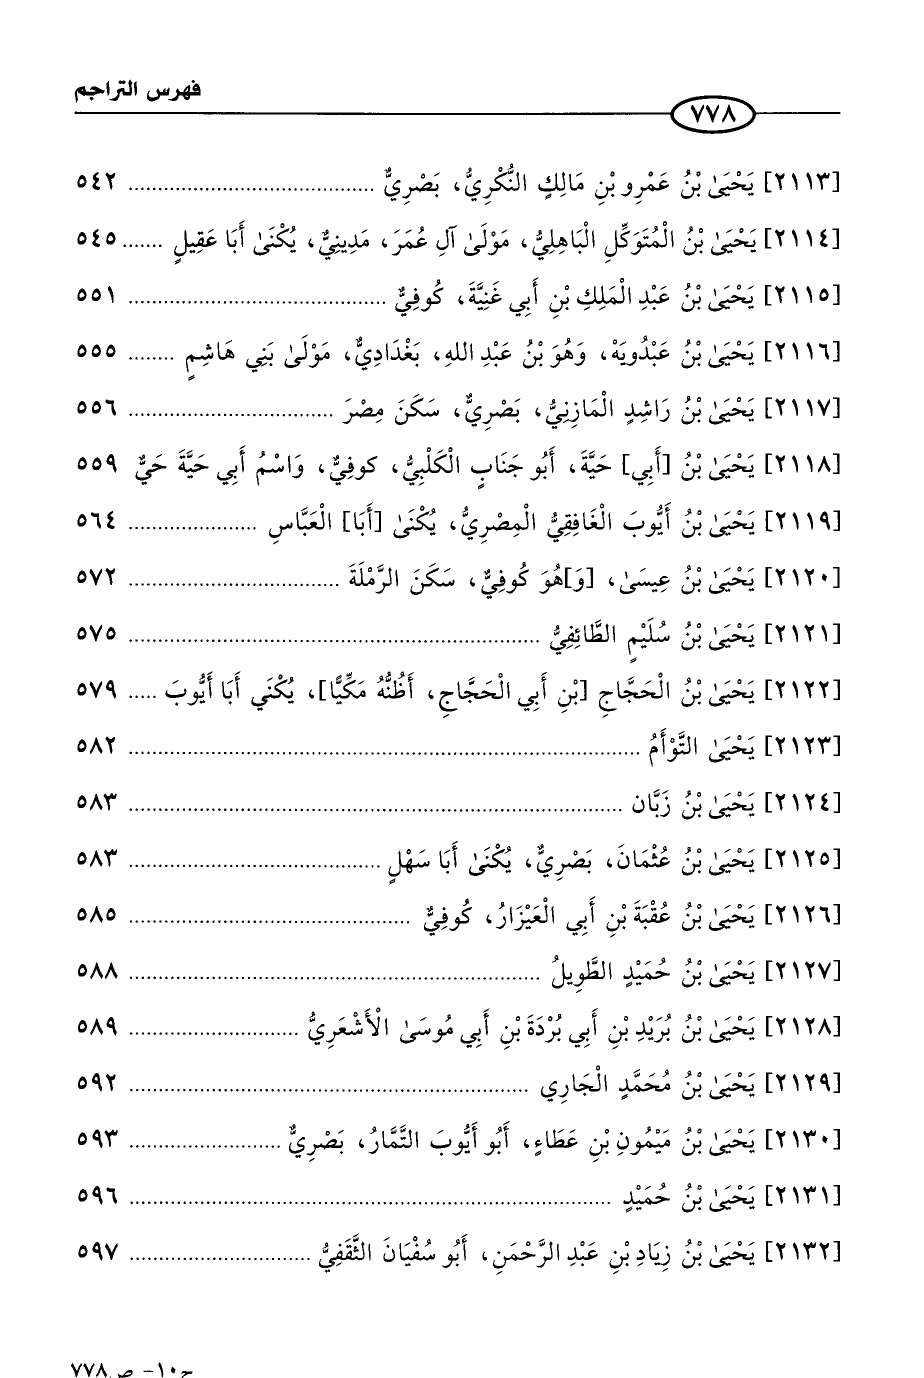 فهرس التراجم
٧٧٨
[٢١١٣] يَحْيَىٰ بْنُ عَمْرِو بْنِ مَالِكٍ النُّكْرِيُّ، بَصْرِيٌّ ......................................... ٥٤٢
[٢١١٤] يَحْيَىٰ بْنُ الْمُتَوَكِّلِ الْبَاهِلِيُّ، مَوْلَىٰ آلِ عُمَرَ، مَدِينِيٌّ، يُكْنَىٰ أَبَا عَقِيلٍ ....... ٥٤٥
[٢١١٥] يَحْيَىٰ بْنُ عَبْدِ الْمَلِكِ بْنِ أَبِي غَنِيَّةَ، كُوفِيٌّ ........................................... ٥٥١
[٢١١٦] يَحْيَىٰ بْنُ عَبْدُويَهْ، وَهُوَ بْنُ عَبْدِ اللهِ، بَغْدَادِيٌّ، مَوْلَىٰ بَنِي هَاشِمٍ ........ ٥٥٥
[٢١١٧] يَحْيَىٰ بْنُ رَاشِدٍ الْمَازِنِيُّ، بَصْرِيٌّ، سَكَنَ مِصْرَ .................................. ٥٥٦
[٢١١٨] يَحْيَىٰ بْنُ [أَبِي] حَيَّةَ، أَبُو جَنَابٍ الْكَلْبِيُّ، كوفِيٌّ، وَاسْمُ أَبِي حَيَّةَ حَيٌّ ٥٥٩
[٢١١٩] يَحْيَىٰ بْنُ أَيُّوبَ الْغَافِقِيُّ الْمِصْرِيُّ، يُكْنَىٰ [أَبَا] الْعَبَّاسِ ...................... ٥٦٤
[٢١٢٠] يَحْيَىٰ بْنُ عِيسَىٰ، [وَ]هُوَ كُوفِيٌّ، سَكَنَ الرَّمْلَةَ ................................... ٥٧٢
[٢١٢١] يَحْيَىٰ بْنُ سُلَيْمٍ الطَّائِفِيُّ ..................................................................... ٥٧٥
[٢١٢٢] يَحْيَىٰ بْنُ الْحَجَّاجِ [بْنِ أَبِي الْحَجَّاجِ، أَظُنُّهُ مَكِّيًّا]، يُكْنَي أَبَا أَيُّوبَ ..... ٥٧٩
[٢١٢٣] يَحْيَىٰ التَّوْأَمُ ..................................................................................... ٥٨٢
[٢١٢٤] يَحْيَىٰ بْنُ زَبَّان .................................................................................. ٥٨٣
[٢١٢٥] يَحْيَىٰ بْنُ عُثْمَانَ، بَصْرِيٌّ، يُكْنَىٰ أَبَا سَهْلٍ .......................................... ٥٨٣
[٢١٢٦] يَحْيَىٰ بْنُ عُقْبَةَ بْنِ أَبِي الْعَيْزَارُ، كُوفِيٌّ ............................................... ٥٨٥
[٢١٢٧] يَحْيَىٰ بْنُ حُمَيْدٍ الطَّوِيلُ ..................................................................... ٥٨٨
[٢١٢٨] يَحْيَىٰ بْنُ بُرَيْدِ بْنِ أَبِي بُرْدَةَ بْنِ أَبِي مُوسَىٰ الْأَشْعَرِيُّ ............................. ٥٨٩
[٢١٢٩] يَحْيَىٰ بْنُ مُحَمَّدٍ الْجَارِي ................................................................... ٥٩٢
[٢١٣٠] يَحْيَىٰ بْنُ مَيْمُونِ بْنِ عَطَاءٍ، أَبُو أَيُّوبَ التَّمَّارُ، بَصْرِيٌّ .......................... ٥٩٣
[٢١٣١] يَحْيَىٰ بْنُ حُمَيْدٍ ................................................................................ ٥٩٦
[٢١٣٢] يَحْيَىٰ بْنُ زِيَادِ بْنِ عَبْدِ الرَّحْمَنِ، أَبُو سُفْيَانَ الثَّقَفِيُّ .............................. ٥٩٧
ج١٠- ص٧٧٨